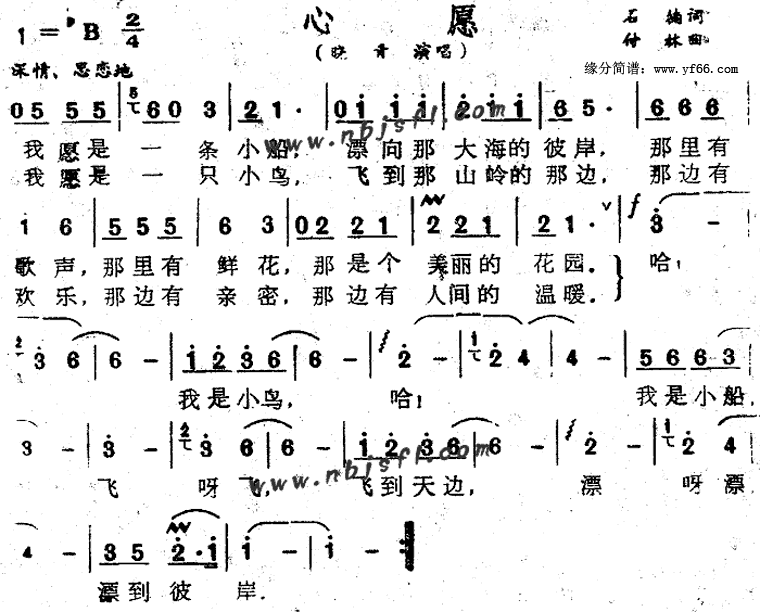 心愿
1=♭B 2/4
石 词
(晓青 演唱)
付林曲
深情、思恋地
缘分简谱: www.yf66.com
05 55 | 60 3 | 21· | 0i ii | 2i i | 65· | 6 66
我愿是一条小船，漂向那大海的彼岸，那里有
我愿是一只小鸟，飞到那山岭的那边，那边有
www.nbjsfl.com
1 6 | 5 55 | 6 3 | 02 21 | 2 21 | 21· | f 3 -
歌声，那里有鲜花，那是个美丽的花园．哈！
欢乐，那边有亲密，那边有人间的温暖．
3 6 | 6 - | i2 36 | 6 - | 2 - | 2 4 | 4 - | 56 63
我是小鸟，哈！我是小船，
3 - | 3 - | 3 6 | 6 - | i2 36 | 6 - | 2 - | 2 4
飞呀飞，飞到天边，漂呀漂
www.nbjsfl.com
4 - | 35 2·i | i - | i -
漂到彼岸．